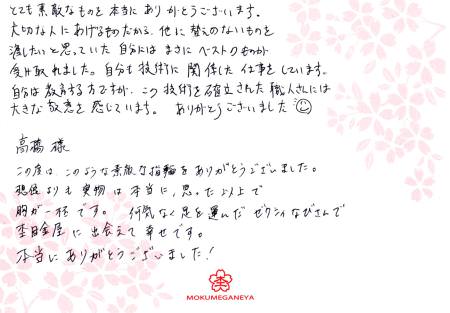 とても素敵なものを本当にありがとうございます。
大切な人にあげるものだから、他に替えのないものを
渡したいと思っていた自分にはまさにベストのものが
受け取れました。自分も技術に関係した仕事をしています。
自分は教育する方ですが、この技術を確立された職人さんには
大きな敬意を感じています。ありがとうございました
高橋様
この度は、このような素敵な指輪をありがとうございました。
想像よりも実物は本当に、思った以上で
胸が一杯です。何気なく足を運んだゼクシィなびさんで
杢目金屋に出会えて幸せです。
本当にありがとうございました!
MOKUMEGANEYA